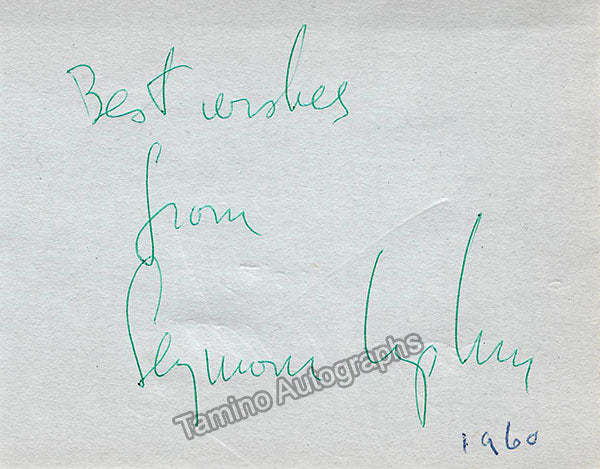 Best wishes
from
Seymour Lipkin
Tamino Autographs
1960